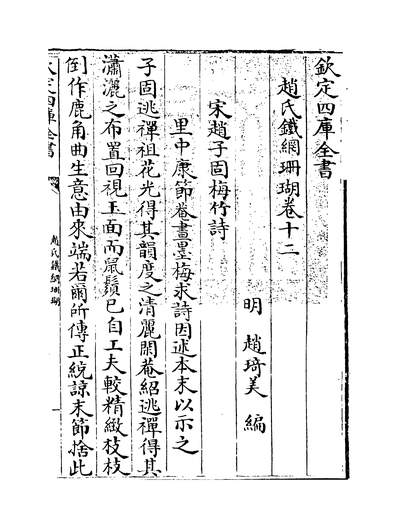 欽定四庫全書
趙氏鐵網珊瑚卷十二
明 趙琦美 編
宋趙子固梅竹詩
里中康節菴畫墨梅求詩因述本末以示之
子固逃禪祖花光得其韻度之清麗閑菴紹逃禪得其
瀟灑之布置回視玉面而鼠鬚已自工夫較精緻枝枝
倒作鹿角曲生意由來端若爾所傳正統諒末節捨此
欽定四庫全書
趙氏鐵網珊瑚
一